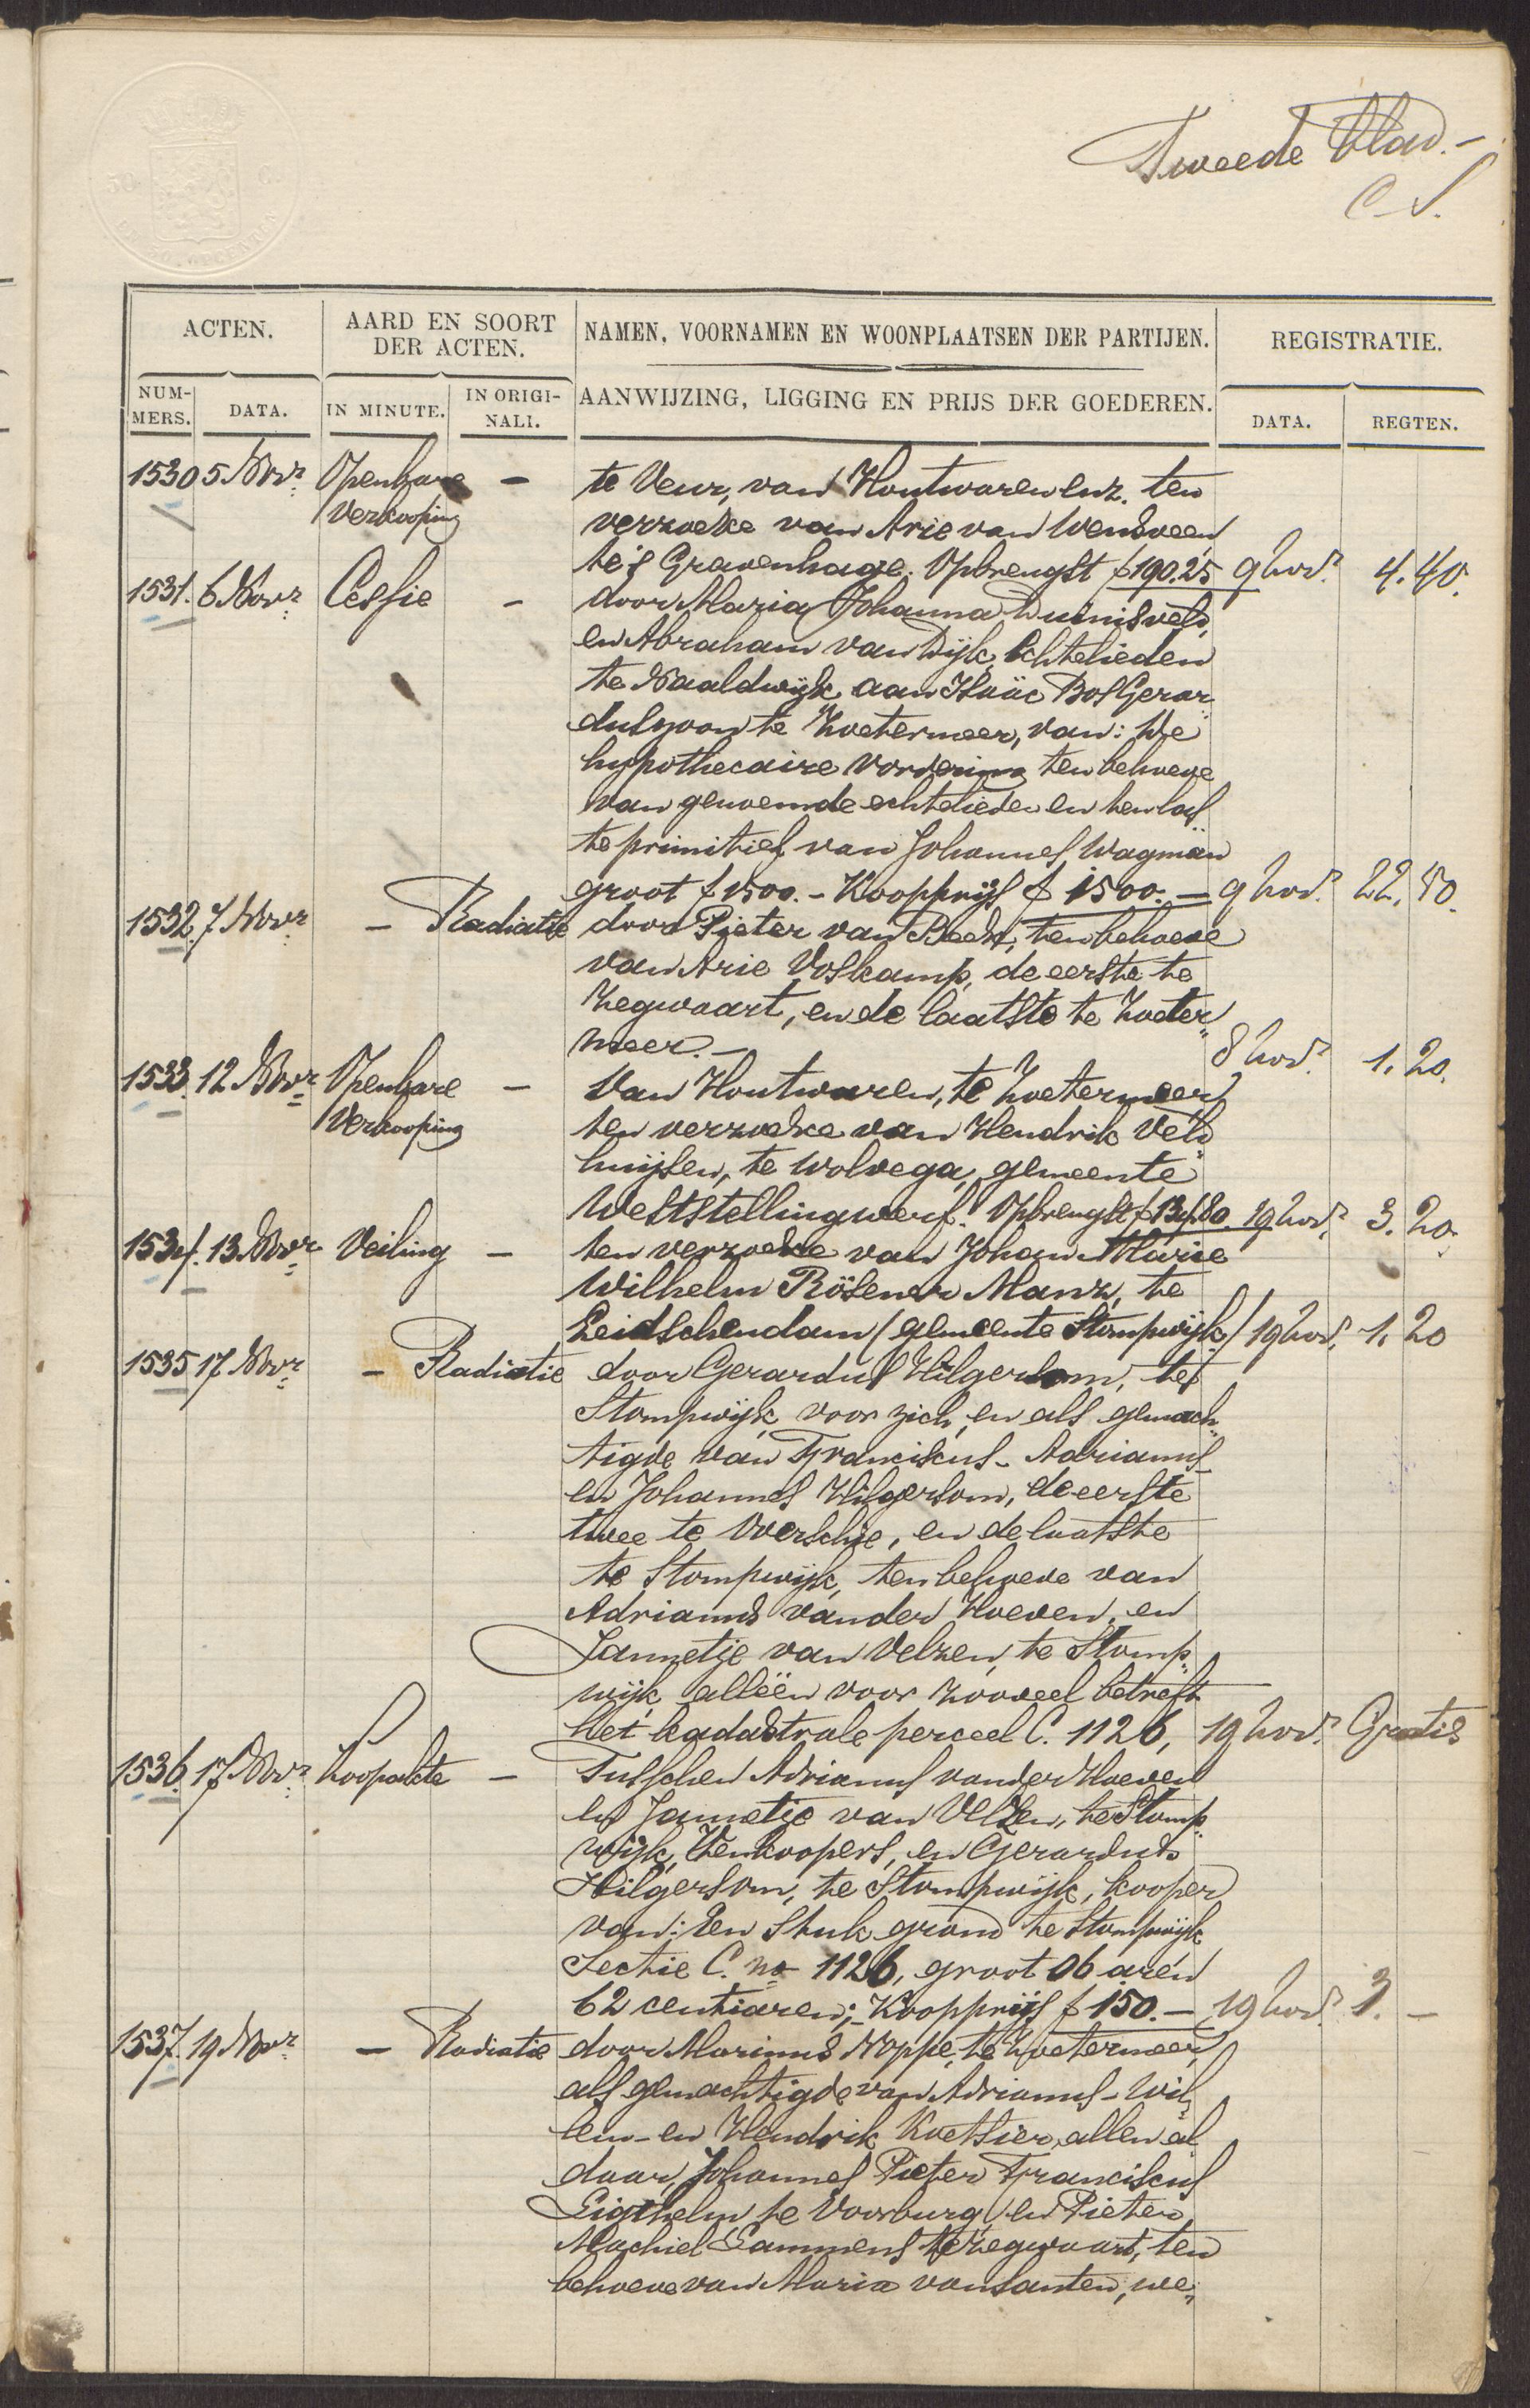 Tweede blad.-
C S.
ACTEN.
AARD EN SOORT DER ACTEN.
NAMEN, VOORNAMEN EN WOONPLAATSEN DER PARTIJEN.
REGISTRATIE.
NUM-MERS.
DATA.
IN MINUTE.
IN ORIGI-NALI.
AANWIJZING, LIGGING EN PRIJS DER GOEDEREN.
DATA.
REGTEN.
1530 5 Novr Openbare - te Veur, van Houtwaren enz. ten
Verkooping verzoeke van Arie van Wensveen
te 's Gravenhage. Opbrengst f 190.25 9 Novr 4.40.
1531. 6 Novr Cessie - door Maria Johanna Duinisveld,
en Abraham van Dijk, Echtelieden
te Naaldwijk aan Isaäc Bos Gerar„
duszoon te Zoetermeer, van: De
hypothecaire vordering ten behoeve
van genoemde echtelieden en ten las
te primitief van Johannes Wagman
groot f 1500.- Koopprijs f 1500.- 9 Novr 22.50.
1532. 7 Novr - Radiatie door Pieter van Beek, ten behoeve
van Arie Voskamp, de eerste te
Zegwaart, en de laatste te Zoeter„
meer.- 8 Novr 1.20.
1533. 12 Novr Openbare - Van Houtwaren, te Zoetermeer
Verkooping ten verzoeke van Hendrik Veld„
huijsen, te Wolvega, gemeente
Weststellingwerf. Opbrengst f 134.80. 19 Novr 3.20.
1534. 13 Novr Veiling - ten verzoeke van Johan Marie
Wilhelm Rösener Manz, te
Leidschendam (gemeente Stompwijk) 19 Novr 1.20
1535 17 Novr - Radiatie door Gerardus Hilgersom, te
Stompwijk voor zich, en als gemach„
tigde van Franciskus- Adrianus-
en Johannes Hilgersom, de eerste
twee te Overschie, en de laatste
te Stompwijk, ten behoeve van
Adrianus van der Hoeven, en
Jannetje van Velzen, te Stomp„
wijk, alléén voor zooveel betreft
het kadastrale perceel C. 1126, 19 Novr Gratis
1536. 17 Novr Koopakte - Tusschen Adrianus van der Hoeven
en Jannetje van Velzen, te Stomp„
wijk, Verkoopers, en Gerardus
Hilgersom, te Stompwijk, kooper
van: Een Stuk grond te Stompwijk
Sectie C. no 1126, groot 06 aren
62 centiaren; Koopprijs f 150.- 19 Novr 3.-
1537. 19 Novr - Radiatie door Marinus Noppe, te Zoetermeer,
als gemachtigde van Adrianus- Wil„
lem- en Hendrik Koetsier, allen al„
daar, Johannes Pieter Franciskus
te Voorburg en Pieter
Machiel Lammens te Zegwaart, ten
behoeve van Maria van Santen, we„